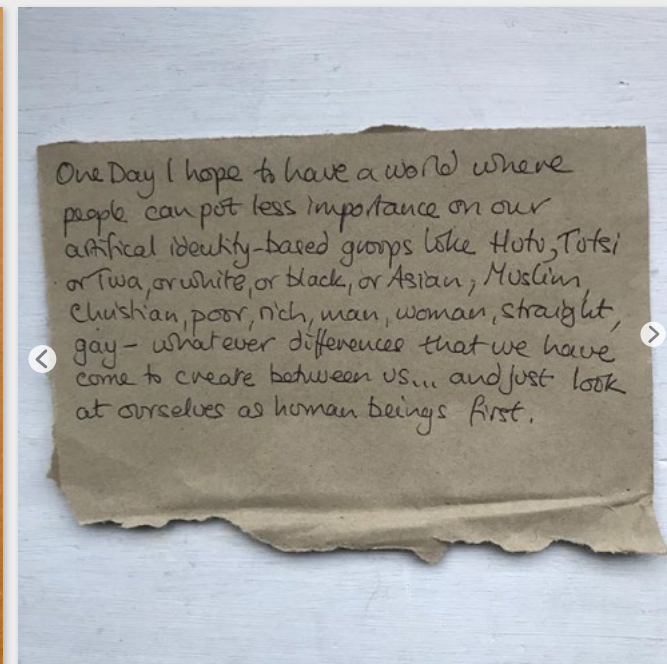 One Day I hope to have a world where
people can put less importance on our
artifical identity-based groups like Hutu, Tutsi
or Twa, or white, or black, or Asian, Muslim,
Christian, poor, rich, man, woman, straight,
gay – whatever differences that we have
come to create between us... and just look
at ourselves as human beings first.